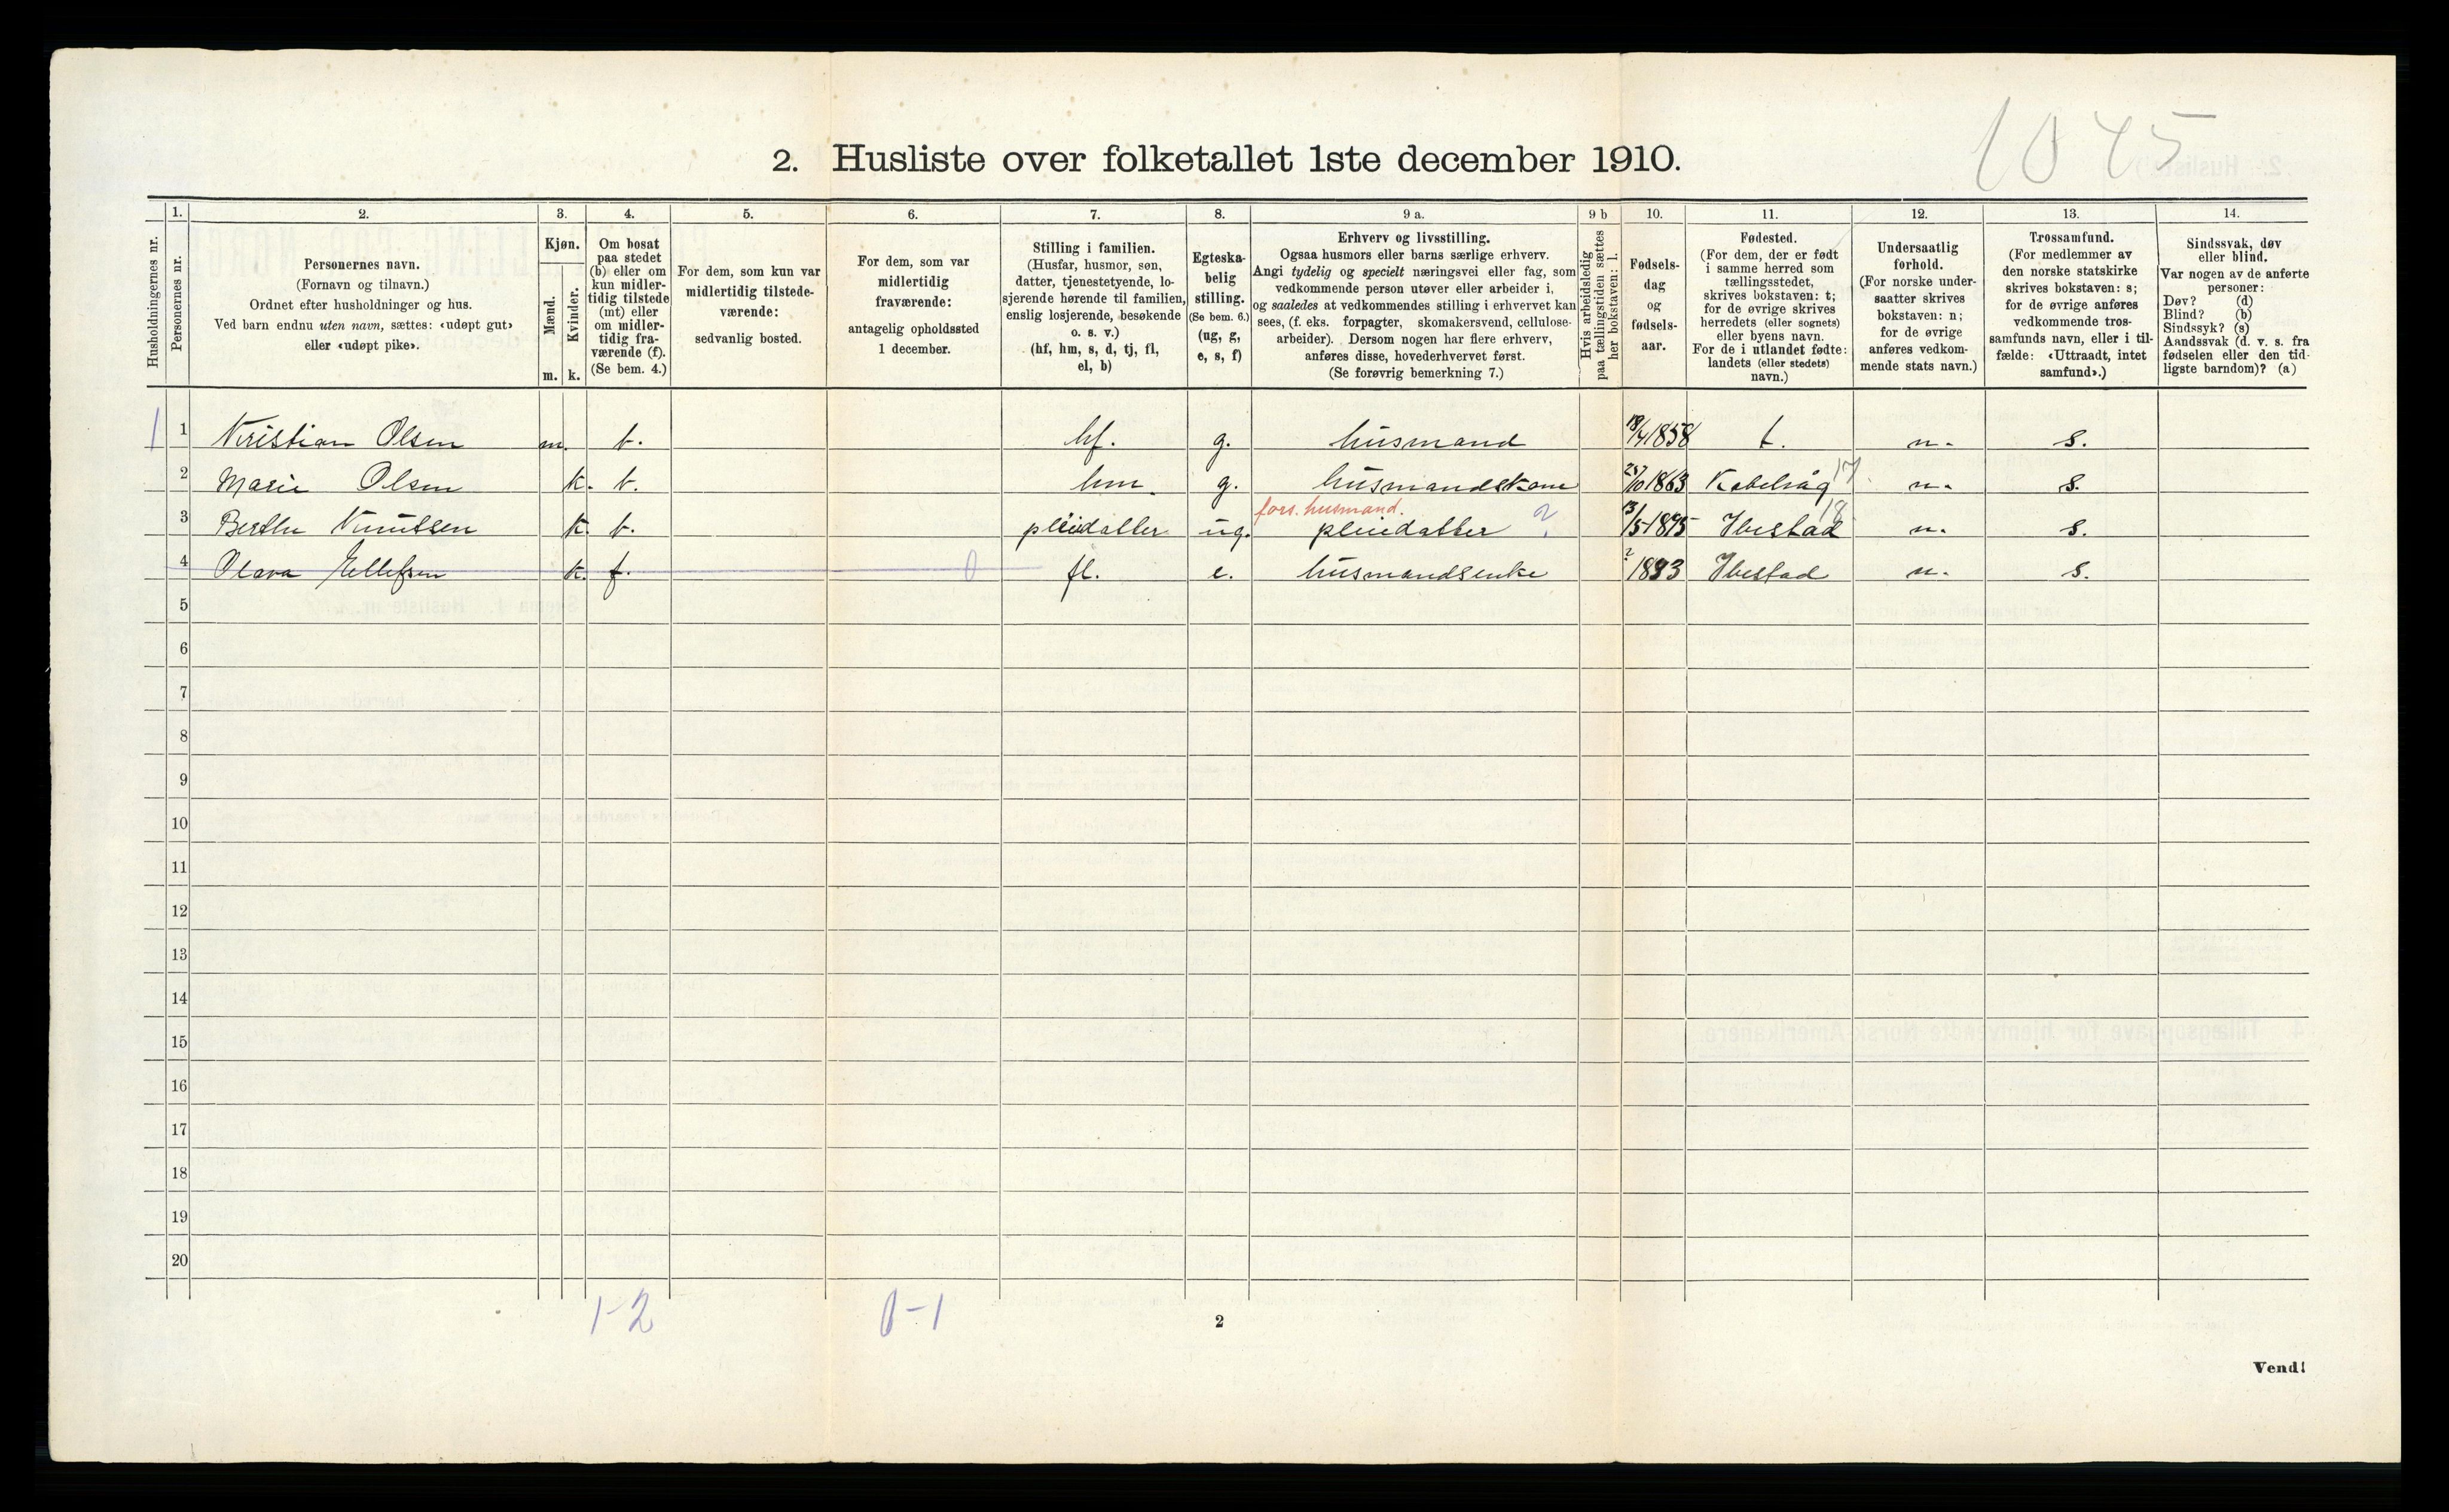 1045
2. Husliste over folketallet 1ste december 1910.
Husholdningernes nr.
1.
Personernes nr.
2.
Personernes navn.
(Fornavn og tilnavn.)
Ordnet efter husholdninger og hus.
Ved barn endnu uten navn, sættes: «udøpt gut»
eller «udøpt pike».
3.
Kjøn.
Mænd.
Kvinder.
m. k.
4.
Om bosat
paa stedet
(b) eller om
kun midler-
tidig tilstede
(mt) eller
om midler-
tidig fra-
værende (f).
(Se bem. 4.)
5.
For dem, som kun var
midlertidig tilstede-
værende:
sedvanlig bosted.
6.
For dem, som var
midlertidig
fraværende:
antagelig opholdssted
1 december.
7.
Stilling i familien.
(Husfar, husmor, søn,
datter, tjenestetyende, lo-
sjerende hørende til familien,
enslig losjerende, besøkende
o. s. v.)
(hf, hm, s, d, tj, fl,
el, b)
8.
Egteska-
belig
stilling.
(Se bem. 6.)
(ug, g,
e, s, f)
9 a.
Erhverv og livsstilling.
Ogsaa husmors eller barns særlige erhverv.
Angi tydelig og specielt næringsvei eller fag, som
vedkommende person utøver eller arbeider i,
og saaledes at vedkommendes stilling i erhvervet kan
sees, (f. eks. forpagter, skomakersvend, cellulose-
arbeider). Dersom nogen har flere erhverv,
anføres disse, hovederhvervet først.
(Se forøvrig bemerkning 7.)
9 b
Hvis arbeidsledig
paa tællingstiden sættes
her bokstaven: l.
10.
Fødsels-
dag
og
fødsels-
aar.
11.
Fødested.
(For dem, der er født
i samme herred som
tællingsstedet,
skrives bokstaven: t;
for de øvrige skrives
herredets (eller sognets)
eller byens navn.
For de i utlandet fødte:
landets (eller stedets)
navn.)
12.
Undersaatlig
forhold.
(For norske under-
saatter skrives
bokstaven: n;
for de øvrige
anføres vedkom-
mende stats navn.)
13.
Trossamfund.
(For medlemmer av
den norske statskirke
skrives bokstaven: s;
for de øvrige anføres
vedkommende tros-
samfunds navn, eller i til-
fælde: «Uttraadt, intet
samfund».)
14.
Sindssvak, døv
eller blind.
Var nogen av de anførte
personer:
Døv? (d)
Blind? (b)
Sindssyk? (s)
Aandssvak (d. v. s. fra
fødselen eller den tid-
ligste barndom)? (a)
1 1 Kristian Olsen m. b. hf. g. husmand 18/4 1858 t. n. s.
2 Marie Olsen k. b. hm. g. husmandskone /10 1863 Kabelvåg 17 n. s.
fors. husmand.
3 Berthe Knutsen k. b. pleiedatter ug. pleiedatter ? 13/5 1895 Ibestad 18 n. s.
4 Olava Ellefsen k. f. 0 fl. e. husmandsenke Ibestad n. s.
5
6
7
8
9
10
11
12
13
14
15
16
17
18
19
20
1-2 0-1
2
Vend!